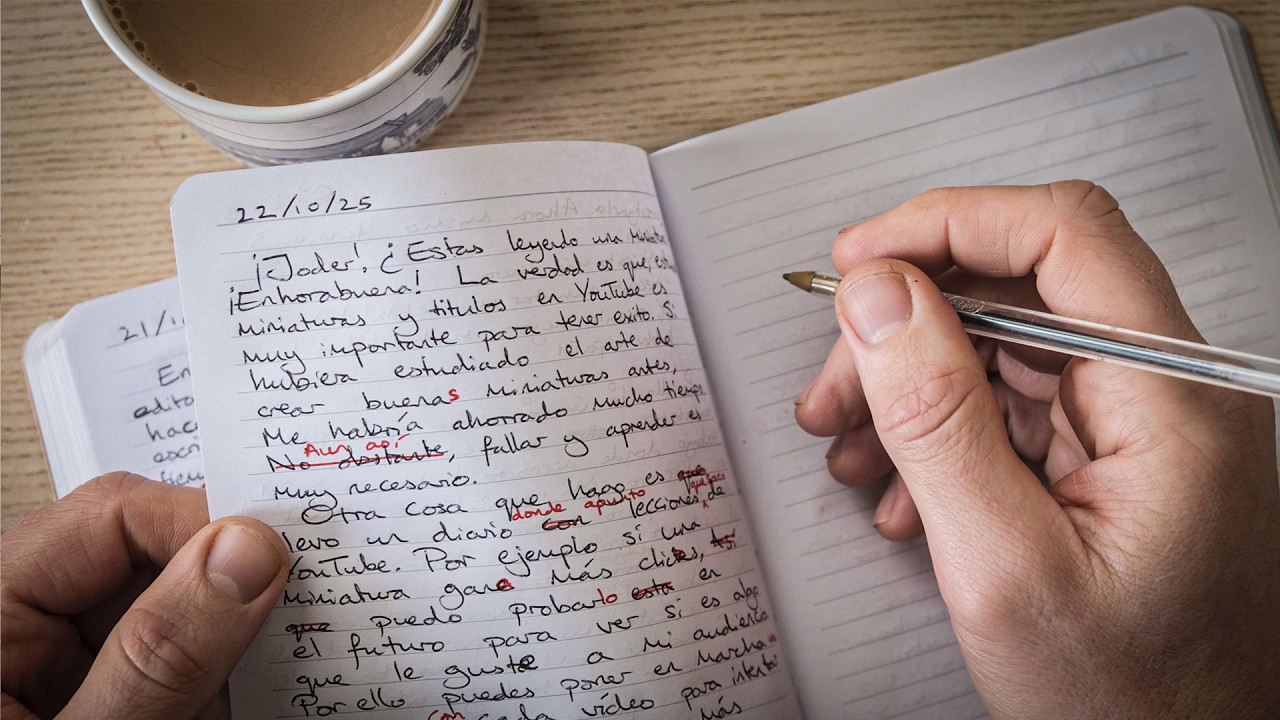 22/10/25
¡Joder! ¿Estas leyendo una
¡Enhorabuena! La verdad es que,
miniaturas y titulos en YouTube es
muy importante para tener exito. Si
hubiera estudiado el arte de
crear buenas miniaturas antes,
Me habría ahorrado mucho tiempo
Aun así
No obstante, fallar y aprender es
muy necesario.
Otra cosa que hago es que
donde apunto que hago
llevo un diario con lecciones, de
YouTube. Por ejemplo si una
miniatura gana más clickes,
que puedo probarlo esta en
el futuro para ver si es algo
que le guste a mi audiencia
Por ello puedes poner en marcha
con cada vídeo para intentar
más
21/1
En
edito
hac
escri